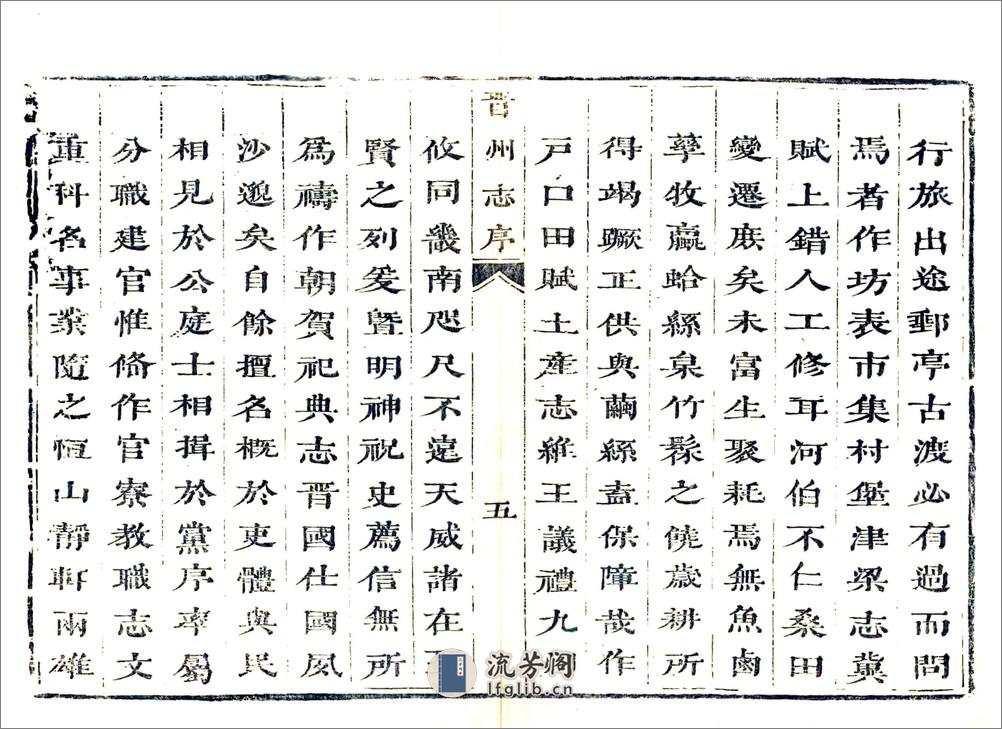 行旅出途郵亭古渡必有過而問
焉者作坊表市集村堡津梁志冀
賦上錯人工修耳河伯不仁桑田
變遷庶矣未富生聚耗焉無魚鹵
孳牧蠃蛤絲枲竹䰍之饒歲耕所
得竭蹶正供與繭絲盍保障哉作
戶口田賦土產志維王議禮九
晉州志序 五
攸同畿南咫尺不遠天威諸在
賢之列爰曁明神祝史薦信無所
爲禱作朝賀祀典志晉國仕國夙
沙邈矣自餘擅名概於吏體與民
相見於公庭士相揖於黨序率屬
分職建官惟脩作官寮教職志文
重科名事業隨之恒山靜軒兩雄
流芳阁
lfglib.cn